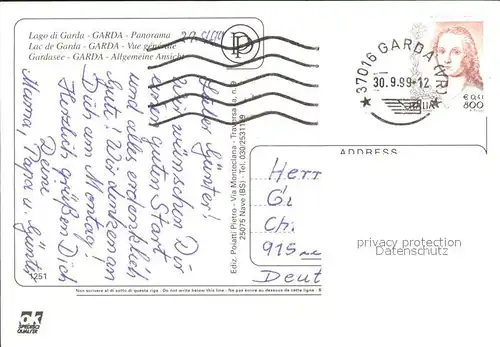 Lago di Garda - GARDA - Panorama
Lac de Garda - GARDA - Vue générale
Gardasee - GARDA - Allgemeine Ansicht
Lieber Günter!
Wir wünschen Dir
einen guten Start
und alles erdenklich
Gute! Wir denken an
Dich am Montag!
Herzlich grüßen Dich
Deine
Mama, Papa u.
1251
Ediz. Poiatti Pietro - Via Monteciana - Traversa
25075 Nave (BS) - Tel. 030/2531159
37016 GARDA (VR)
30.9.99-12
ITALIA
€ 0,41
800
ADDRESS
Herr
G
Ch
915
Deut
privacy protection
Datenschutz
Non scrivere al di sotto di questa riga - Do not write below this line - Ne pas écrire au dessous de cette ligne
OK
SPEDISCI
QUALITÀ